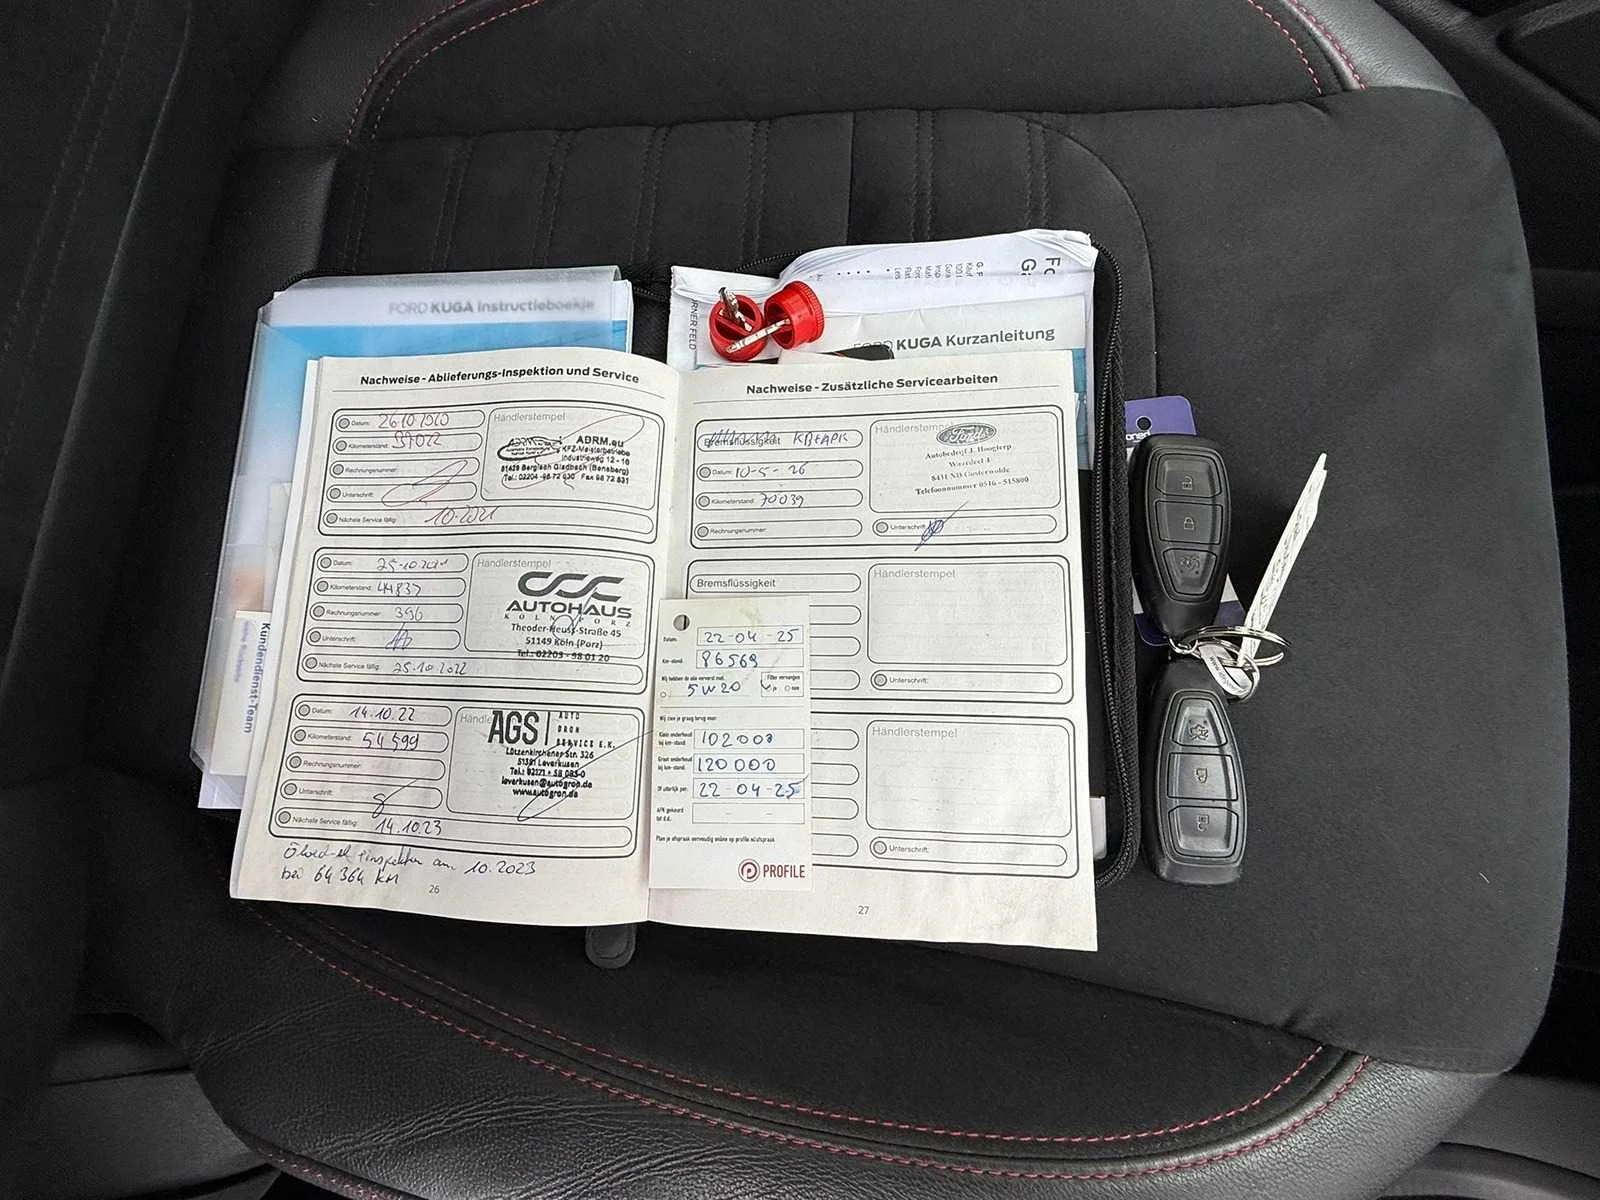 FORD KUGA Instructieboekje
FORD KUGA Kurzanleitung
Kundendienst-Team
Nachweise - Ablieferungs-Inspektion und Service
Datum: 26.10.2020
Kilometerstand:
Rechnungsnummer:
Unterschrift:
Nächste Service fällig: 10.2021
Händlerstempel
ADRM.eu
KFZ-Meisterbetriebe
Industrieweg 12 - 16
51429 Bergisch Gladbach (Bensberg)
Datum: 25.10.2021
Kilometerstand:
Rechnungsnummer: 396
Unterschrift:
Nächste Service fällig: 25.10.2022
Händlerstempel
CSC
AUTOHAUS
KÖLN PORZ
Theodor-Heuss-Straße 45
51149 Köln (Porz)
Tel.: 02203 - 98 01 20
Datum: 14.10.22
Kilometerstand: 54 599
Rechnungsnummer:
Unterschrift:
Nächste Service fällig: 14.10.23
AGS
AUTO
GRON
SERVICE E.K.
Lützenkirchener Str. 326
51381 Leverkusen
leverkusen@autogron.de
www.autogron.de
am 10.2023
bei 64 364 KM
26
Nachweise - Zusätzliche Servicearbeiten
Bremsflüssigkeit
Datum: 10-5-
Kilometerstand: 70039
Rechnungsnummer:
Händlerstempel
Ford
Autobedrijf J. Hoogterp
8431 Oosterwolde
Telefoonnummer 0516 - 515800
Unterschrift:
Bremsflüssigkeit
Händlerstempel
Unterschrift:
Händlerstempel
Unterschrift:
27
Datum: 22-04-25
Km-stand: 86569
Wij hebben de olie ververst met:
5W20
Filter vervangen
ja nee
Wij zien je graag terug voor:
Klein onderhoud
bij km-stand: 102000
Groot onderhoud
bij km-stand: 120000
Of uiterlijk per: 22 04-25
APK gekeurd
tot d.d.
PROFILE